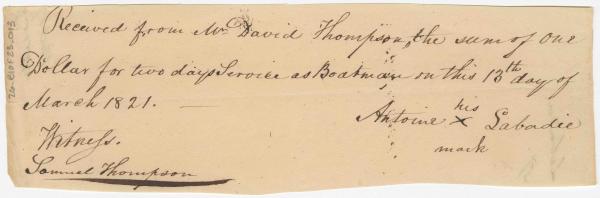 Received from Mr David Thompson, the sum of One
Dollar for two days Service as Boatman on this 13th day of
March 1821. —
his
Antoine x Labadie
mark
Witness.
Samuel Thompson